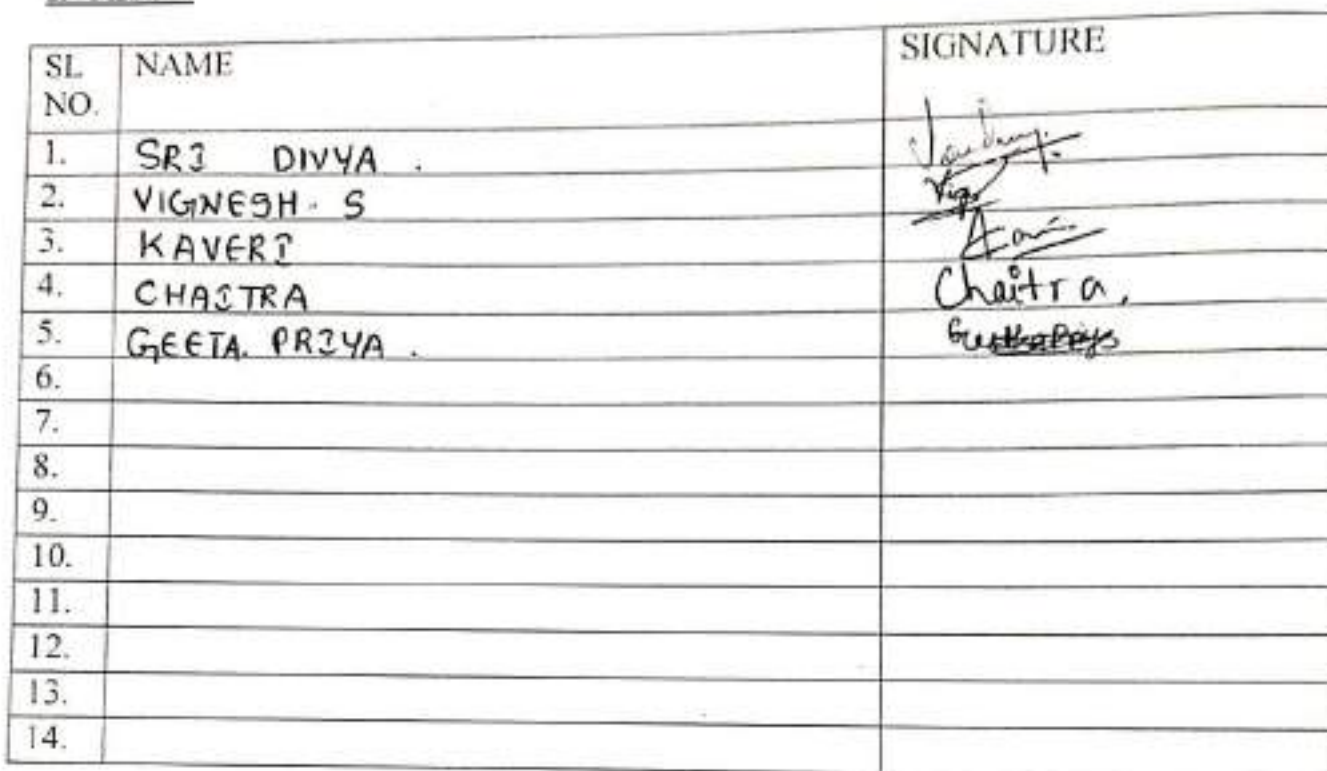 SL NO. NAME SIGNATURE
1. SRI DIVYA .
2. VIGNESH. S
3. KAVERI
4. CHAITRA Chaitra,
5. GEETA. PRIYA .
6.
7.
8.
9.
10.
11.
12.
13.
14.